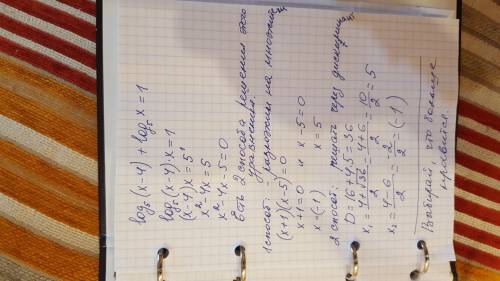 log₅(x-4) + log₅ x = 1
log₅(x-4)·x = 1
(x-4)x = 5¹
x² - 4x = 5
x² - 4x - 5 = 0
Есть 2 способа решения этого
уравнения.
1 способ: - разложить на множит.
(x+1)(x-5) = 0
x+1 = 0 и x-5 = 0
x = (-1) x = 5
2 способ: решать через дискримин.
D = 16 + 4·5 = 36
x₁ = (4+√36)/2 = (4+6)/2 = 10/2 = 5
x₂ = (4-6)/2 = -2/2 = (-1)
Выбирай, что больше
нравится.